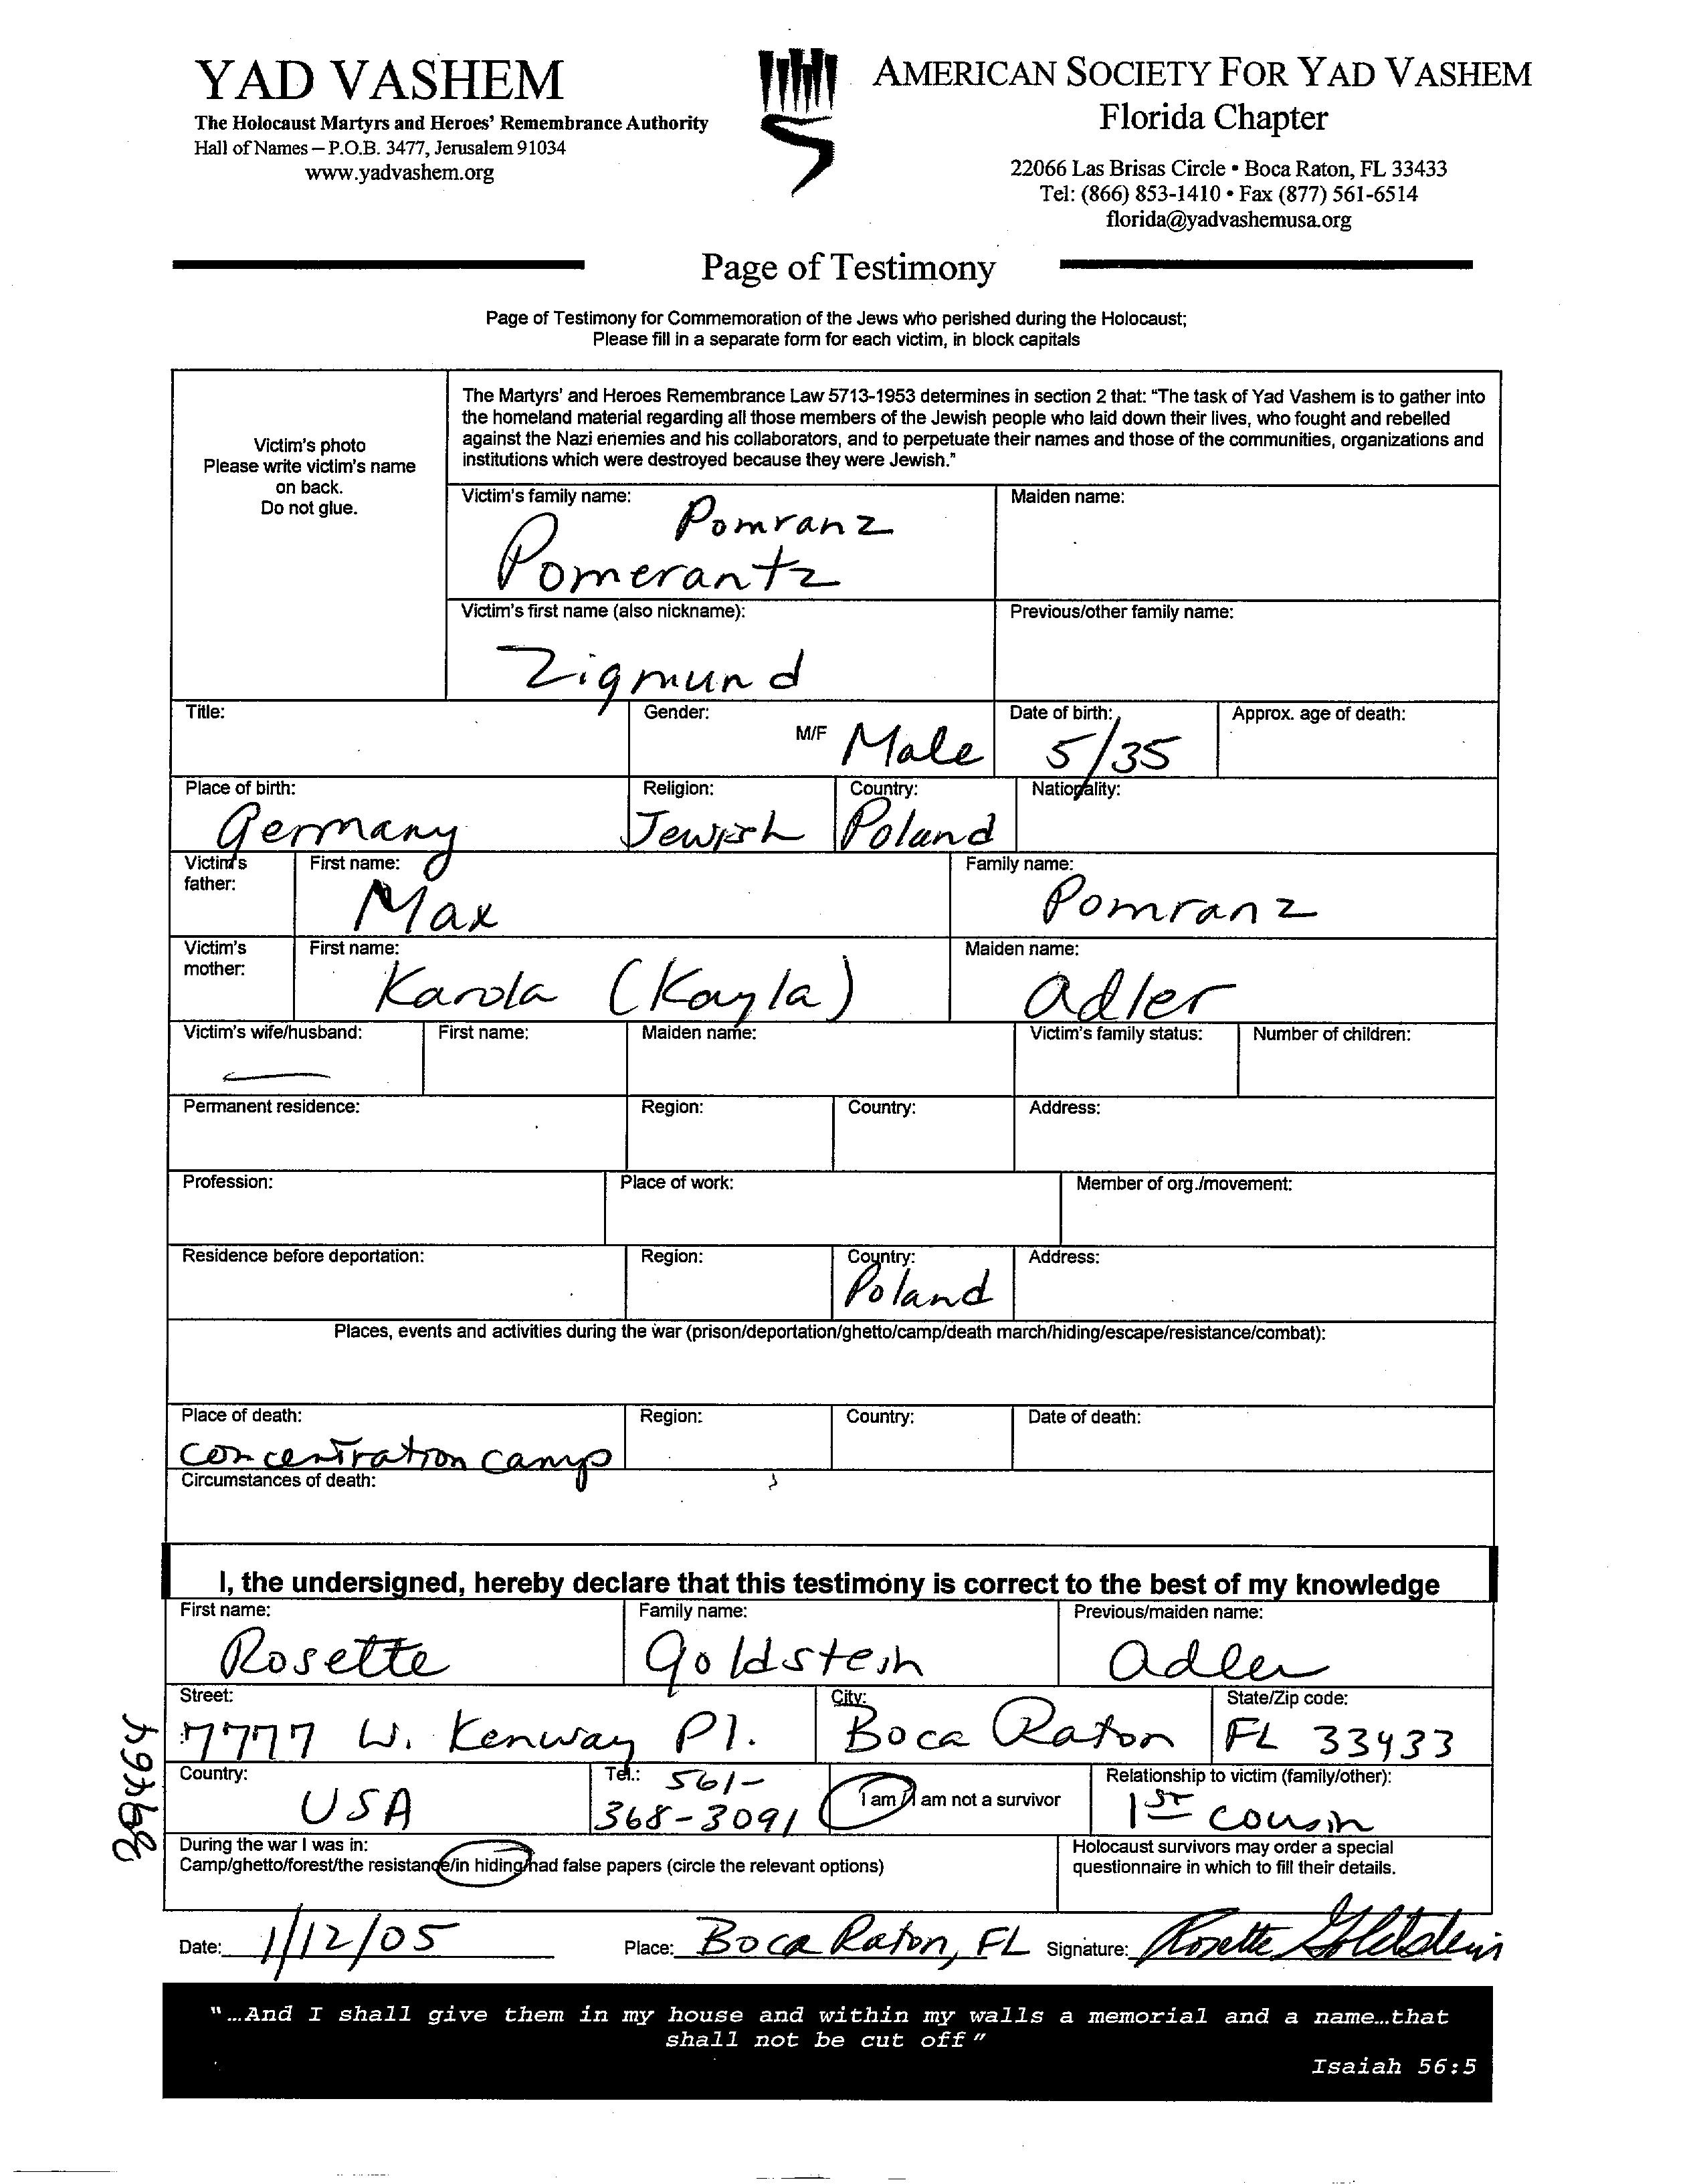 YAD VASHEM
The Holocaust Martyrs and Heroes' Remembrance Authority
Hall of Names – P.O.B. 3477, Jerusalem 91034
www.yadvashem.org
AMERICAN SOCIETY FOR YAD VASHEM
Florida Chapter
22066 Las Brisas Circle • Boca Raton, FL 33433
Tel: (866) 853-1410 • Fax (877) 561-6514
florida@yadvashemusa.org
Page of Testimony
Page of Testimony for Commemoration of the Jews who perished during the Holocaust;
Please fill in a separate form for each victim, in block capitals
Victim's photo
Please write victim's name
on back.
Do not glue.
The Martyrs' and Heroes Remembrance Law 5713-1953 determines in section 2 that: "The task of Yad Vashem is to gather into
the homeland material regarding all those members of the Jewish people who laid down their lives, who fought and rebelled
against the Nazi enemies and his collaborators, and to perpetuate their names and those of the communities, organizations and
institutions which were destroyed because they were Jewish."
Victim's family name:
Pomranz
Pomerantz
Maiden name:
Victim's first name (also nickname):
Zigmund
Previous/other family name:
Title:
Gender:
M/F Male
Date of birth:
5/35
Approx. age of death:
Place of birth:
Germany
Religion:
Jewish
Country:
Poland
Nationality:
Victim's
father:
First name:
Max
Family name:
Pomranz
Victim's
mother:
First name:
Karola (Kayla)
Maiden name:
Adler
Victim's wife/husband:
First name:
Maiden name:
Victim's family status:
Number of children:
Permanent residence:
Region:
Country:
Address:
Profession:
Place of work:
Member of org./movement:
Residence before deportation:
Region:
Country:
Poland
Address:
Places, events and activities during the war (prison/deportation/ghetto/camp/death march/hiding/escape/resistance/combat):
Place of death:
concentration camp
Region:
Country:
Date of death:
Circumstances of death:
I, the undersigned, hereby declare that this testimony is correct to the best of my knowledge
First name:
Rosette
Family name:
Goldstein
Previous/maiden name:
Adler
Street:
7777 W. Kenway Pl.
City:
Boca Raton
State/Zip code:
FL 33433
Country:
USA
Tel.: 561-
368-3091
I am/I am not a survivor
Relationship to victim (family/other):
1ST cousin
During the war I was in:
Camp/ghetto/forest/the resistance/in hiding/had false papers (circle the relevant options)
Holocaust survivors may order a special
questionnaire in which to fill their details.
Date: 1/12/05
Place: Boca Raton, FL
Signature: Rosette Goldstein
"...And I shall give them in my house and within my walls a memorial and a name...that
shall not be cut off"
Isaiah 56:5